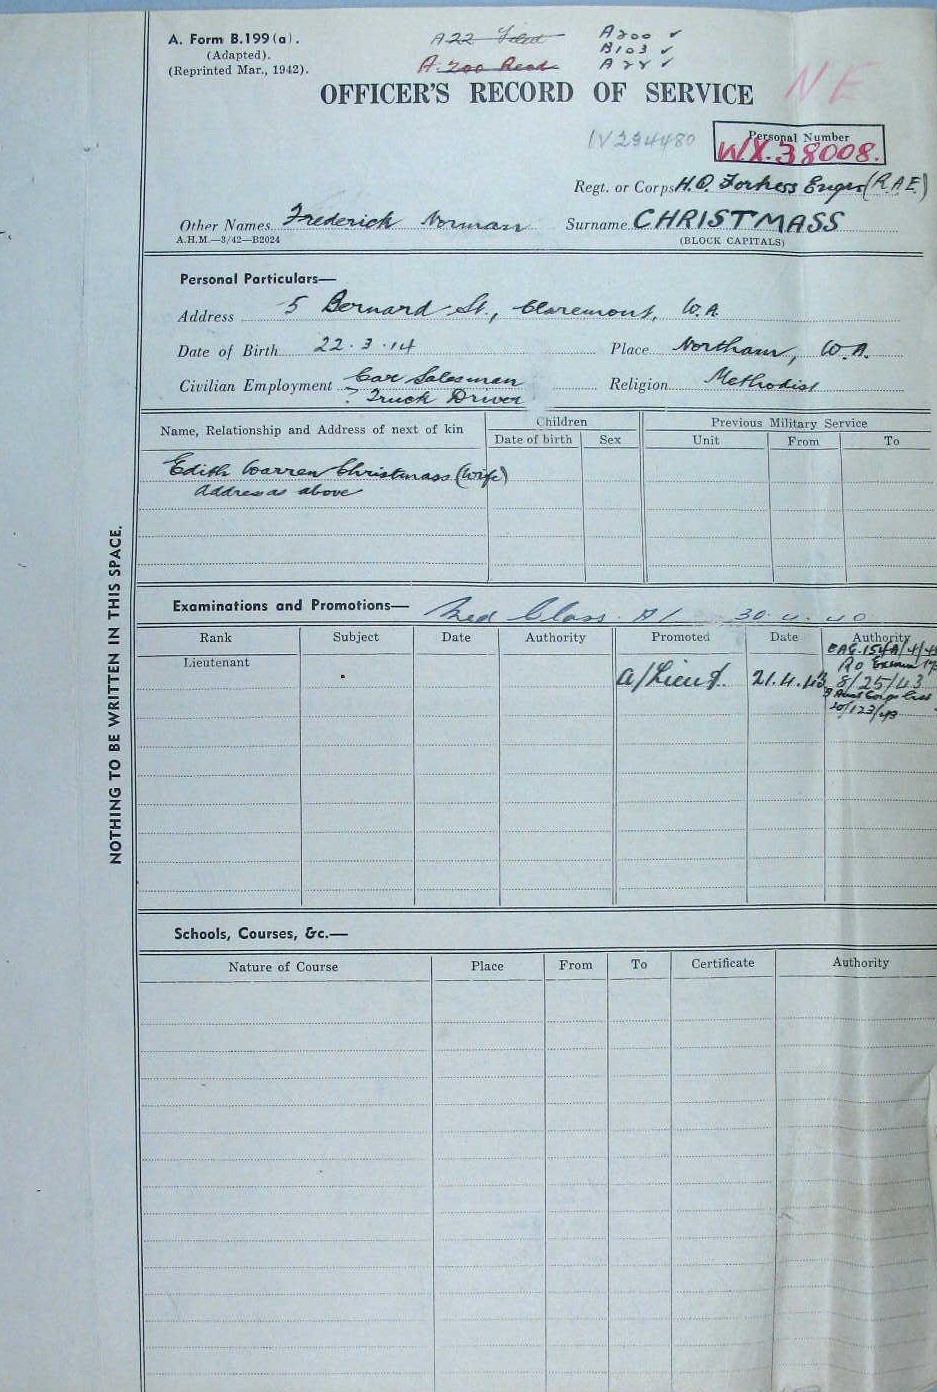 A. Form B.199(a).
(Adapted).
(Reprinted Mar., 1942).
A22
A.200 Read
A200 ✓
B103 ✓
A22 ✓
NE
OFFICER'S RECORD OF SERVICE
Personal Number
WX.38008.
Regt. or Corps H.Q. Fortress Engrs (R.A.E.)
Other Names Frederick Norman
Surname CHRISTMASS
A.H.M.—3/42—B2024
(BLOCK CAPITALS)
Personal Particulars—
Address 5 Bernard St., Claremont, W.A.
Date of Birth 22.3.14
Place Northam, W.A.
Civilian Employment Car Salesman
? Truck Driver
Religion Methodist
Name, Relationship and Address of next of kin
Children
Date of birth Sex
Previous Military Service
Unit From To
Edith Warren Christmass (Wife)
Address as above
NOTHING TO BE WRITTEN IN THIS SPACE.
Examinations and Promotions— Med Class A1
Rank Subject Date Authority Promoted Date Authority
Lieutenant
A/Lieut. 21.4.43 8/25/43
20/123/43
Schools, Courses, &c.—
Nature of Course Place From To Certificate Authority